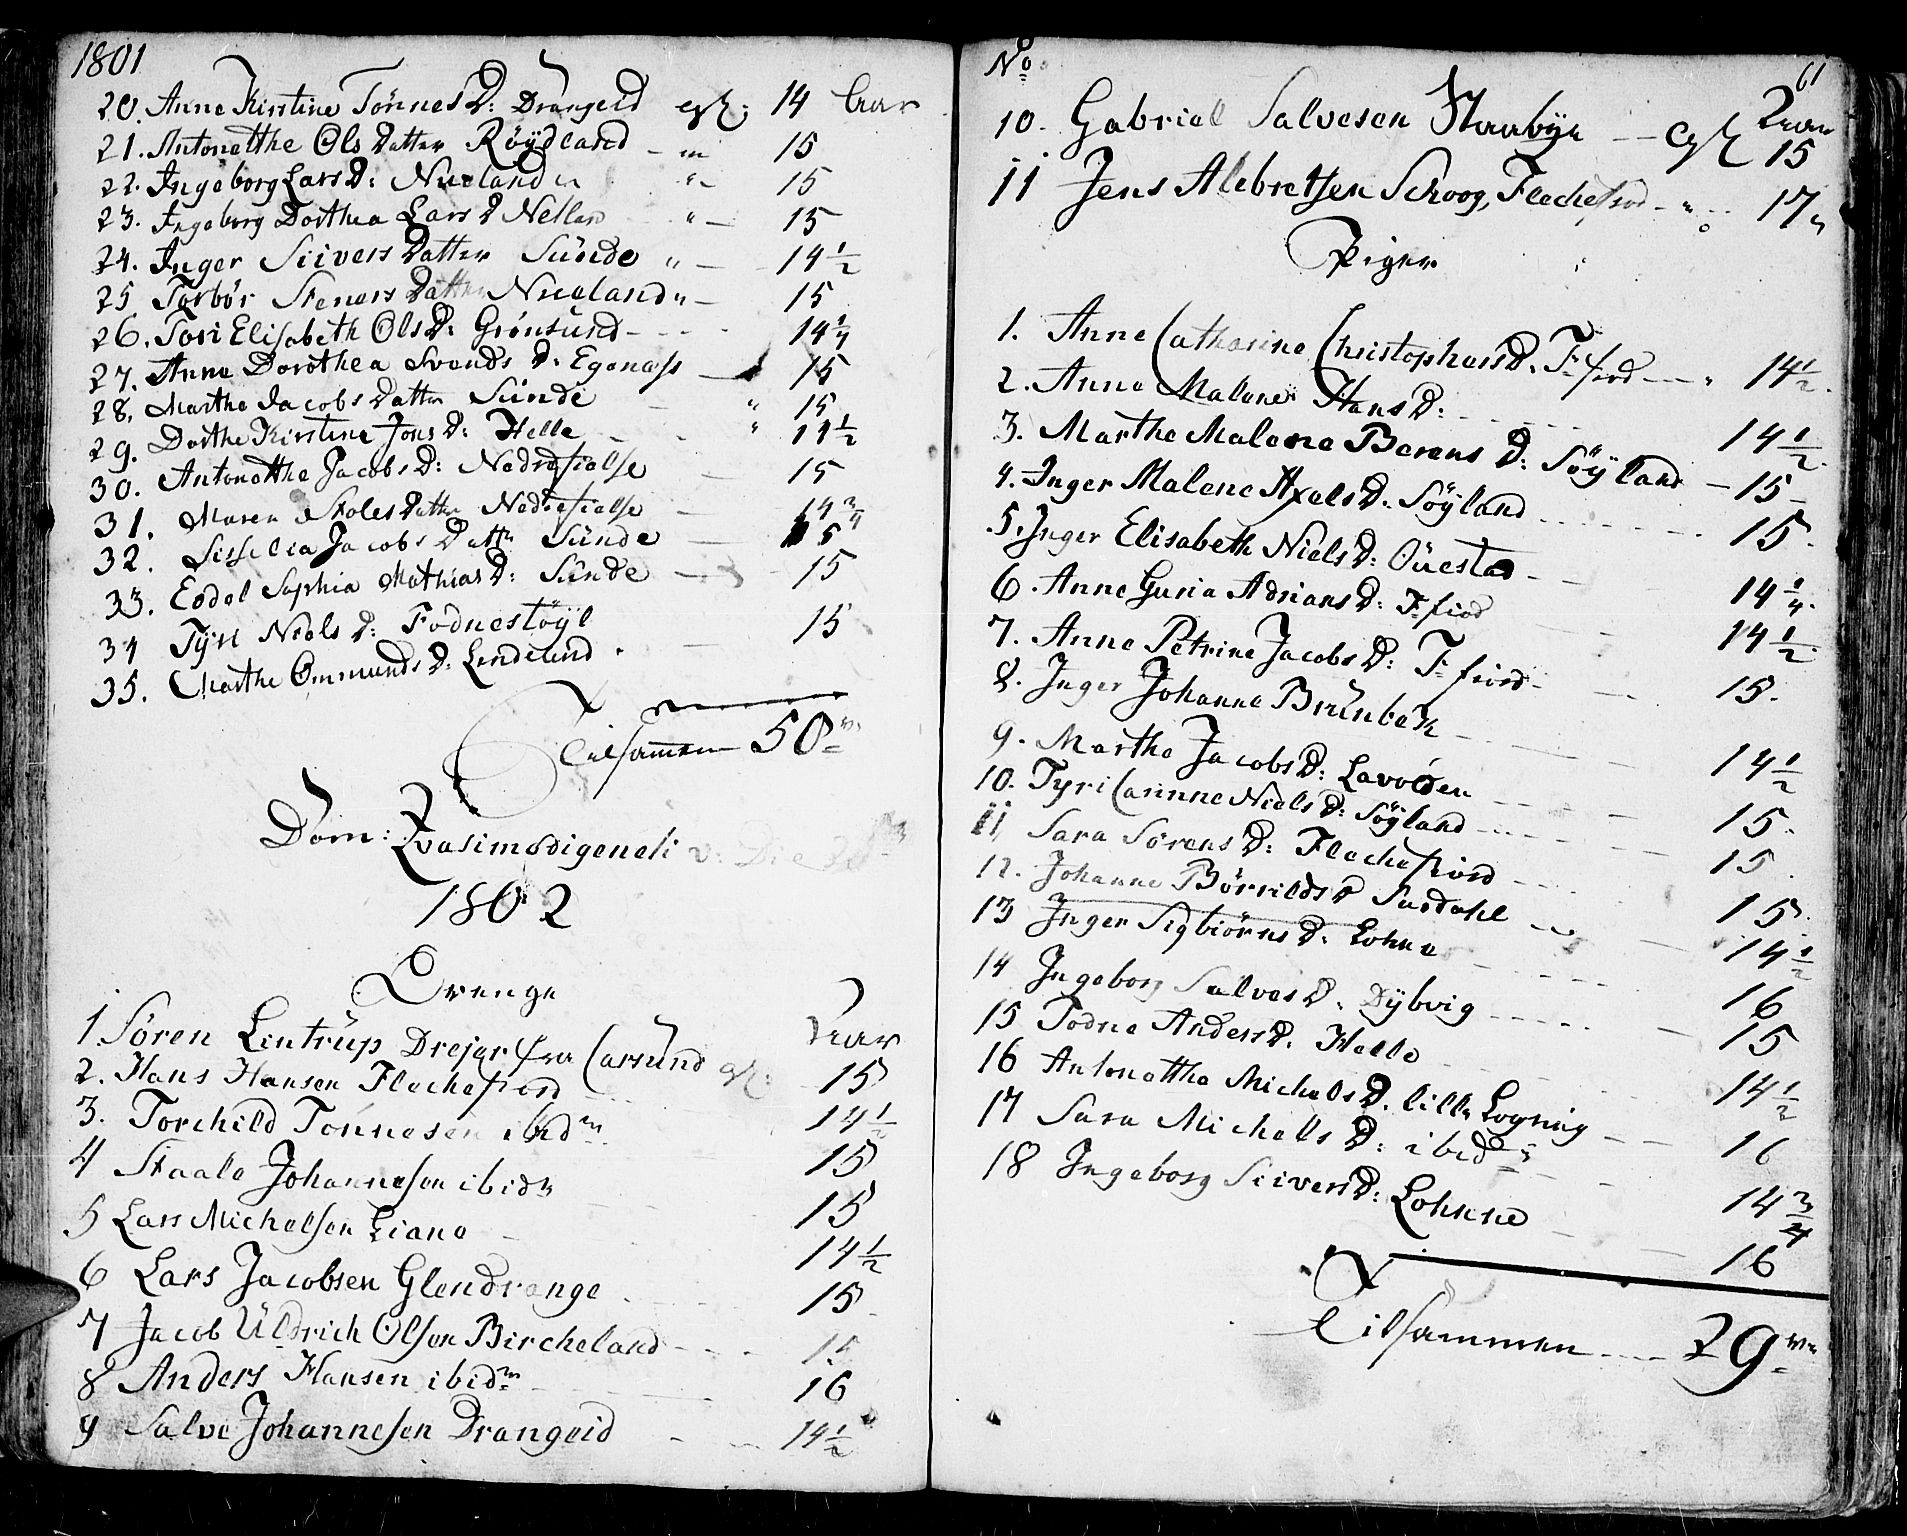 1801
20. Anne Kirstine TönnesD: Drangeid gl: 14 Aar
21. Antonetthe OlsDatter Röÿdland 15
22. Ingeborg LarsD: Nueland 15
23. Ingeborg Dorthea LarsD Nellan 15
24. Inger SiiversDatter Sünde 14 1/2
25 Torbör StenersDatter Nueland 15
26. Tori Elisabeth OlsD: Grönsund 14 1/4
27. Anne Dorothea Svends D: Egenæss 15
28. Marthe JacobsDatter Sünde 15
29. Dorthe Kirstine JonsD: Helle 14 1/2
30. Antonetthe JacobsD: Nedrefielse 15
31. Maren StolesDatter Nedrefielse 14 3/4
32. Sisselia JacobsDattr Sünde 15
33. Eodel Sophia MathiasD: Sünde 15
34 Tÿri NielsD: Fodnestöÿl 15
35. Marthe OmmundsD: Lindelund
Tilsammen 50
Dom: Qvasimodigeneti v: Die
1802
Drenge
1. Sören Lintrüp Drejer fra Carsund gl: Aar 15
2. Hans Hansen Flechefiord 14 1/2
3. Torchild Tönnesen ibidm 15
4 Staale Johannesen ibidm 15
5 Lars Michelsen Liane 14 1/2
6 Lars Jacobsen Glendrange 15
7 Jacob Üldrich Olsen Bircheland 15
8 Anders Hansen ibidm 16
9 Salve Johannesen Drangeid 14 1/2
No 61
10. Gabriel Salvesen Staabÿe gl Aar 15
11 Jens Alebretsen Schoog, Flechefiord 17
Piger
1. Anne Catharine ChristophersD. F-fiord 14 1/2
2. Anne Malene HansD: 14 1/2
3. Marthe Malene BerensD: Söÿland 15
4. Inger Malene AxelsD. Söÿland 15
5. Inger Elisabeth NielsD: Oüestad 14 1/4
6. Anne Guria AdriansD: F-fiod 14 1/2
7. Anne Petrine JacobsD: F-fiord 15
8. Inger Johanne Brünbek 14 1/2
9. Marthe JacobsD: Lavolden 15
10. Tyri Carinne NielsD: Söÿland 15
11 Sara SörensD: Flechefiord 15
12. Johanne BörrildsD Surdahl 14 1/2
13 Inger SigbiörnsD: Lohne 16
14 Ingeborg SalvesD: Dÿbvig 15
15 Todne AndersD. Helle 14 1/2
16 Antonettha MichelsD. lille Logning 16
17 Sara MichelsD: ibidm 14 3/4
18 Ingeborg SiiversD: Lohnne 16
Tilsammen 29